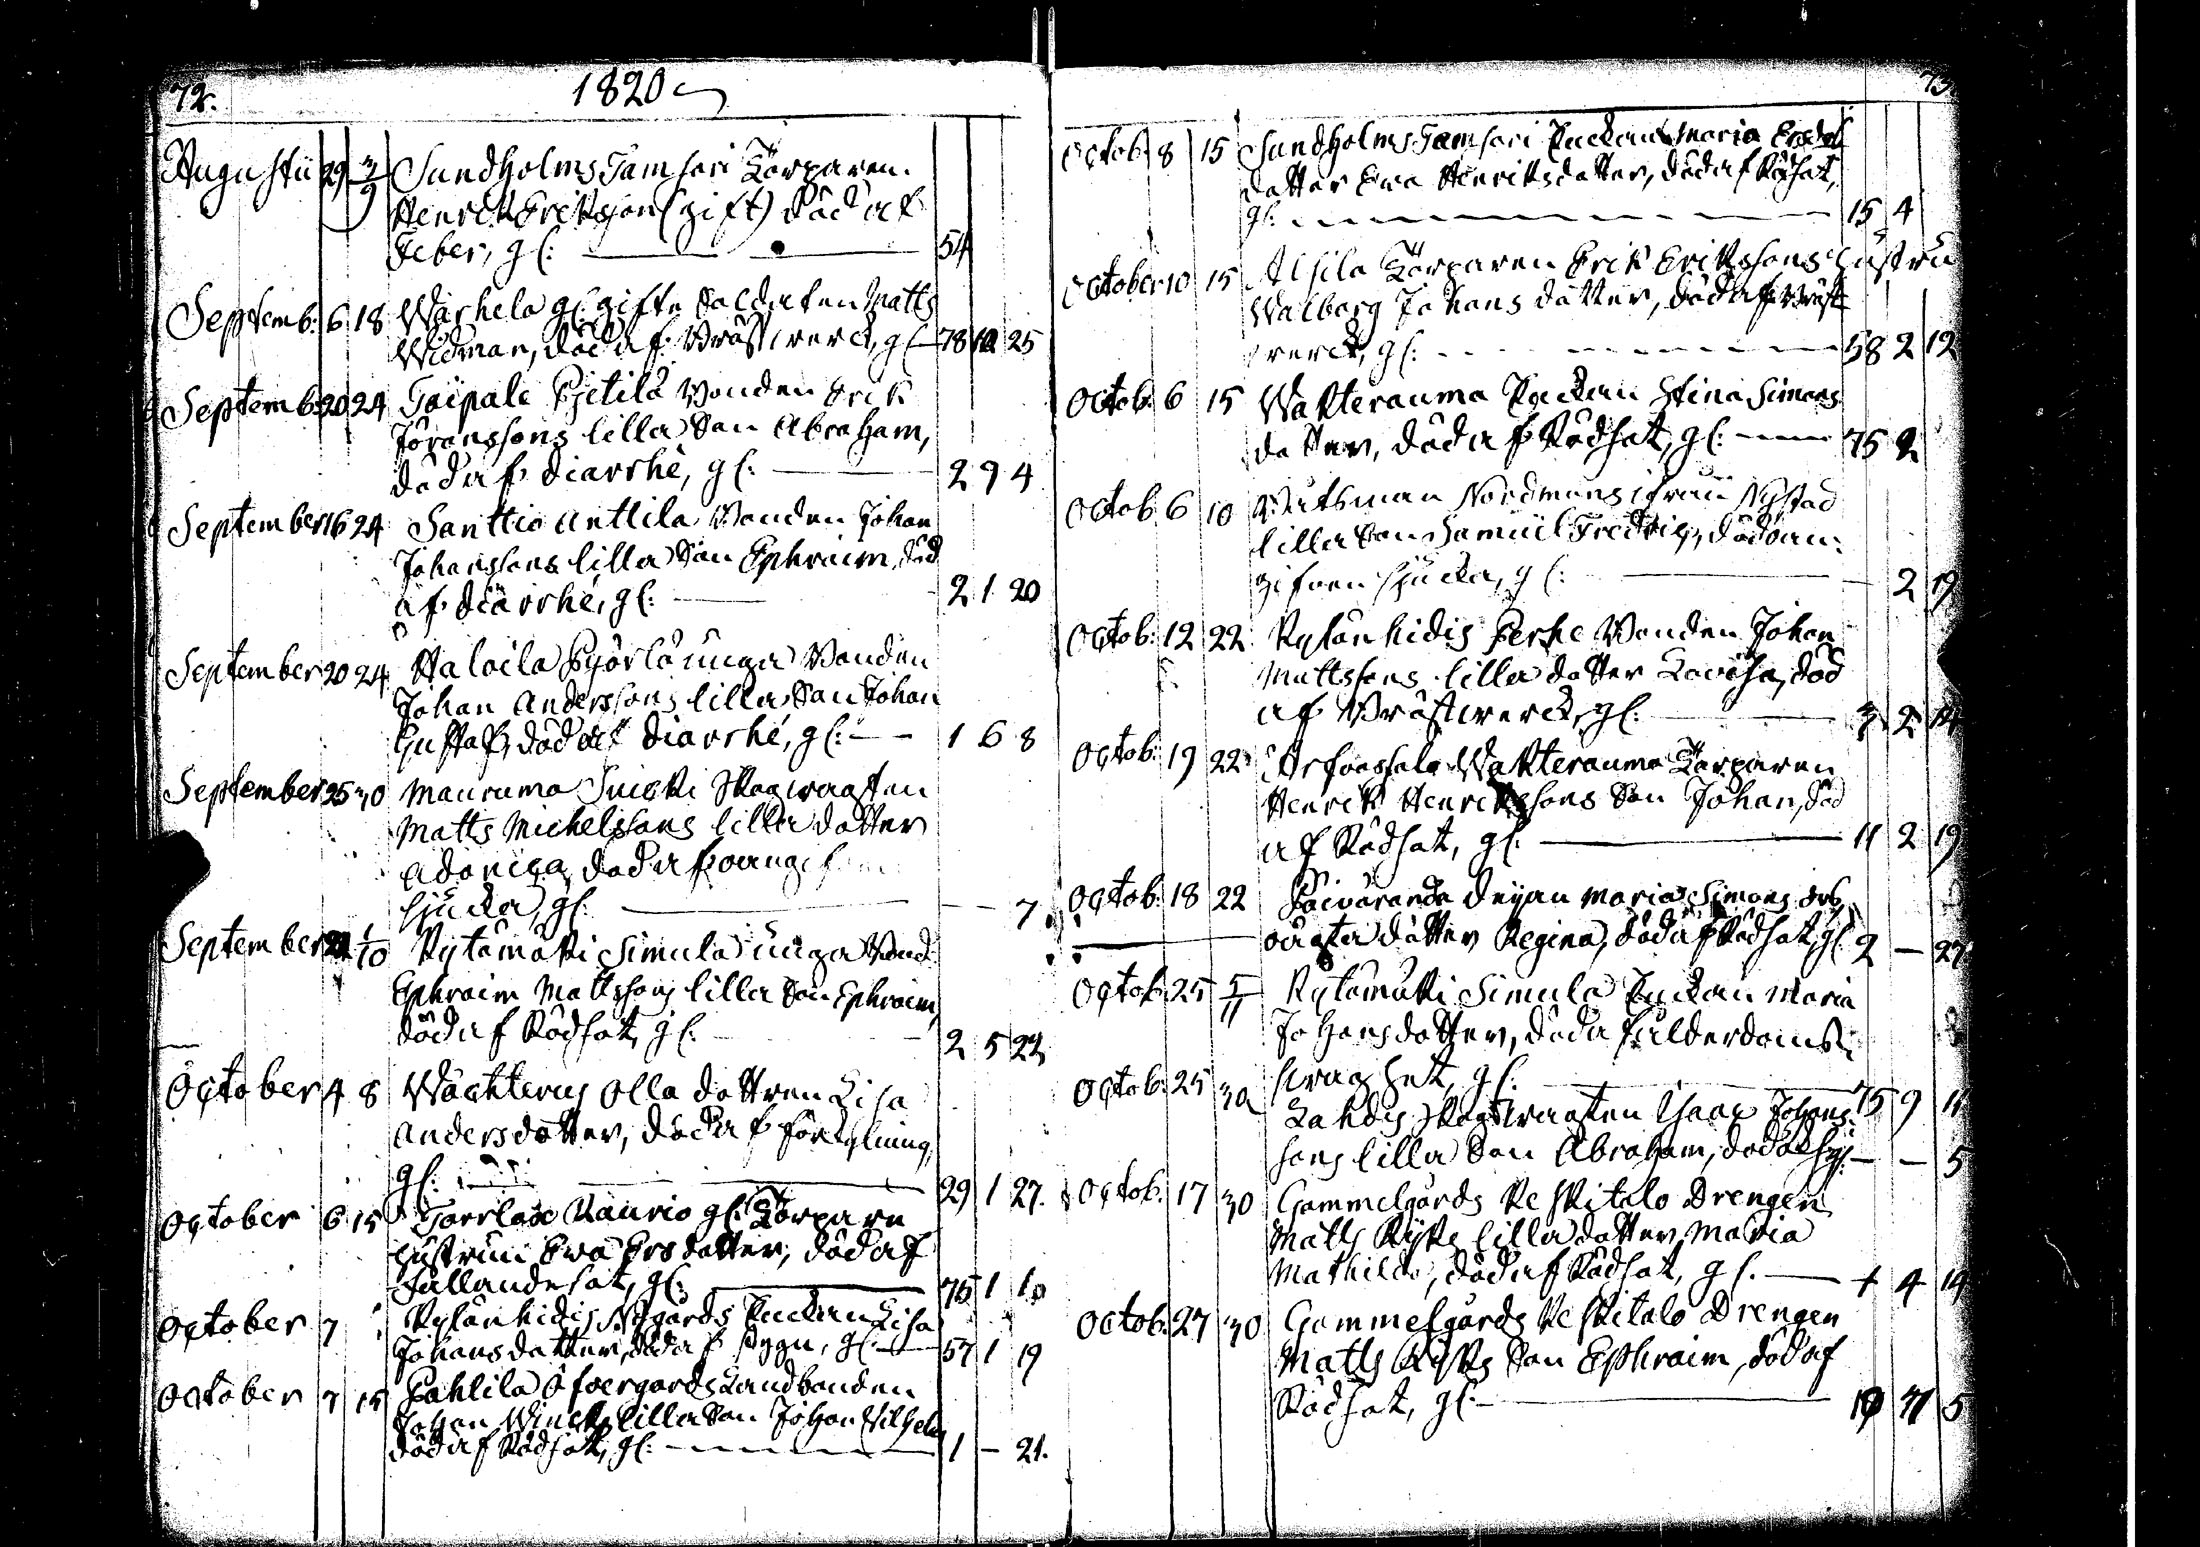 72.
1820
Augusti 29 3/9 Sundholms Tamsari Torparen
Henrik Eriksson (gift) död af
Feber, gl: 54
Septemb: 6 18 Warhela gl. gifte Soldaten Matts
Widman, död af Bröstwerck, gl 78 10 25
Septemb: 20 24 Taipale Pietilä Bonden Erik
Jöranssons lilla Son Abraham,
död af diarrhé, gl: 2 9 4
September 16 24 Santtio Anttila Bonden Johan
Johanssons lilla Son Ephraim, död
af diarrhé, gl: 2 1 20
September 20 24 Haloila Pyörlä unga Bonden
Johan Anderssons lilla Son Johan
Gustaf, död af diarrhé, gl: 1 6 8
September 25 30 Mauruma Skogwagten
Matts Michelssons lilla dotter
död af oang
sjucka, gl: 7
September 1/10 Rytämäki Simula unga Bond.
Ephraim Mattssons lilla Son Ephraim,
död af Rödsot, gl: 2 5 22
October 4 8 Wächters Olla dottren Lisa
Andersdotter, död af förkylning,
gl: 29 1 27.
October 6 15 Torrlax Kaurio gl. Torpare
hustrun Ewa Ersdotter, död af
Fallandesot, gl: 75 1 10
October 7 Nygårds Enckan Lisa
Johansdotter, död af stygn, gl: 57 1 19
October 7 15 Pahlila Öfvergårds Landbonden
Johan lilla Son Johan Vilhelm
död af Rödsot, gl: 1 – 21.
73
Octob: 8 15 Sundholms Tamsari Enckans Maria
dotter Ewa Henriksdotter, död af Rödsot,
gl: 15 4
October 10 15 Alsila Torparen Erik Erikssons hustru
Walborg Johansdotter, död af Bröst
werck, gl: 58 2 12
Octob: 6 15 Wakterauma Enckan Stina Simons
dotter, död af Rödsot, gl: 75 2
Octob 6 10 Båtsman Nordmans ifrån Nystad
lilla Son Samuel Fredric, död oan:
gifven sjucka, gl: 2 19
Octob: 12 22 Perhe Bonden Johan
Mattssons lilla dotter Lovisa, död
af Bröstwerck, gl: 3 2 14
Octob: 19 22 Arfvassalo Wakterauma Torparen
Henrik Henrikssons Son Johan, död
af Rödsot, gl: 11 2 19
Octob: 18 22 Päiväranda Deyan Maria Simons drs
oägta dotter Regina, död af Rödsot, gl 2 – 27
Octob: 25 5/11 Rytämäki Simula Enckan Maria
Johansdotter, död af ålderdoms
swaghet, gl: 75 9 11
Octob: 25 30 Lahdis Skogswagten Isaac Johans:
sons lilla Son Abraham, död – – 5
Octob. 17 30 Gammelgårds Keskitalo Drengen
Matts lilla dotter Maria
Mathilda, död af Rödsot, gl. 1 4 14
Octob: 27 30 Gammelgårds Keskitalo Drengen
Matts Son Ephraim, död af
Rödsot, gl: 5